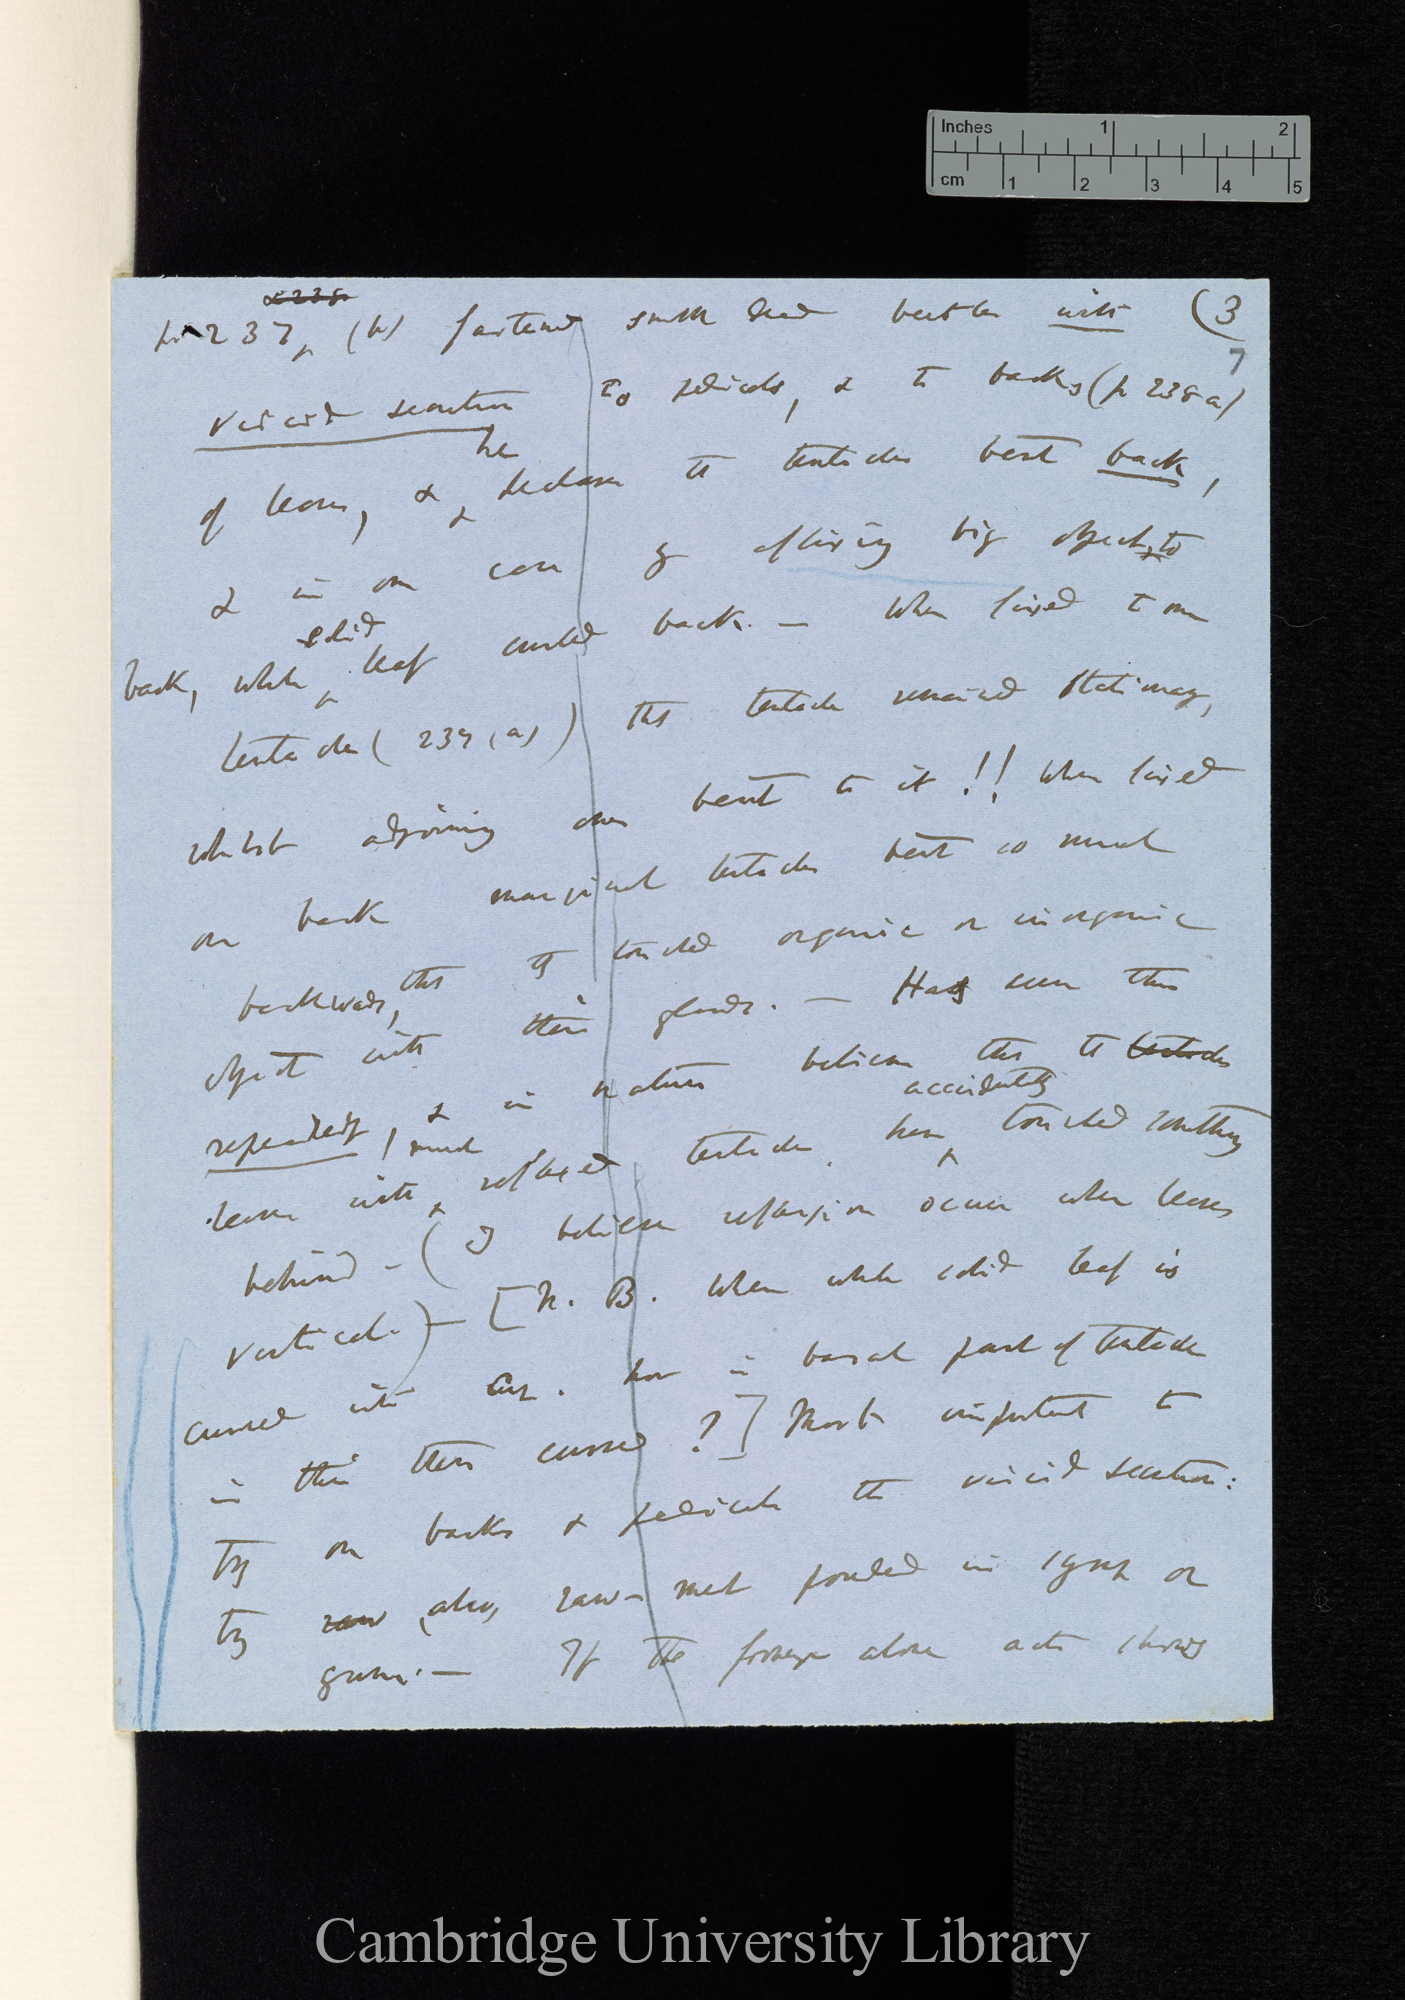 Inches 1 2
cm 1 2 3 4 5
& 238
p. 237, (b) fastened small dead beetles with (3
7
viscid secretion to pedicels, & to backs (p 238 a)
of leaves, & he declares the tentacles bent back,
& in one case of affixing big object, to
back, whole solid leaf curled back. — When fixed to one
tentacle (239, (a)) this tentacle remained stationary,
whilst adjoining ones bent to it!! When fixed
on back marginal tentacles bent so much
backwards, that they touched organic or inorganic
object with their glands. — Has seen this
repeatedly, & in nature believes that the tentacles
leaves with much reflexed tentacles have accidentally touched something
behind — (I believe reflexion occurs when leaves
vertical.) — [N.B. When whole solid leaf is
curved into cup. how is basal part of tentacle
is their then curved?] Most important to
try on backs & pedicels the viscid secretion:
try raw also, raw-meat pounded in syrup or
gum. — If the former alone acts shows
Cambridge University Library